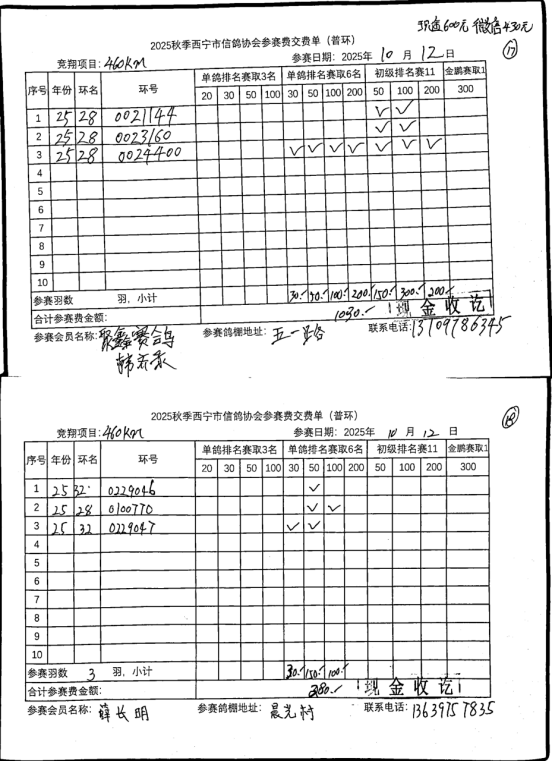 现金600元 微信430元
2025秋季西宁市信鸽协会参赛费交费单（普环）
⑰
竞翔项目：460km 参赛日期：2025年 10 月 12 日
序号 年份 环名 环号 单鸽排名赛取3名 单鸽排名赛取6名 初级排名赛11 金鹏赛取1
20 30 50 100 30 50 100 200 50 100 200 300
1 25 28 0021144 ✓ ✓
2 25 28 0023160 ✓ ✓
3 25 28 0024400 ✓ ✓ ✓ ✓ ✓ ✓ ✓
4
5
6
7
8
9
10
参赛羽数 羽，小计 30.- 50.- 100.- 200.- 150.- 300.- 200.-
合计参赛费金额： 1030.- 现金收讫
参赛会员名称：聚鑫赛合鸟 参赛鸽棚地址：五一 联系电话：13709786345
韩
2025秋季西宁市信鸽协会参赛费交费单（普环）
⑱
竞翔项目：460km 参赛日期：2025年 10 月 12 日
序号 年份 环名 环号 单鸽排名赛取3名 单鸽排名赛取6名 初级排名赛11 金鹏赛取1
20 30 50 100 30 50 100 200 50 100 200 300
1 25 32 0229046 ✓
2 25 28 0100770 ✓ ✓
3 25 32 0229047 ✓ ✓
4
5
6
7
8
9
10
参赛羽数 3 羽，小计 30.- 150.- 100.-
合计参赛费金额： 280.- 现金收讫
参赛会员名称：薛长明 参赛鸽棚地址：晨光村 联系电话：13639757835